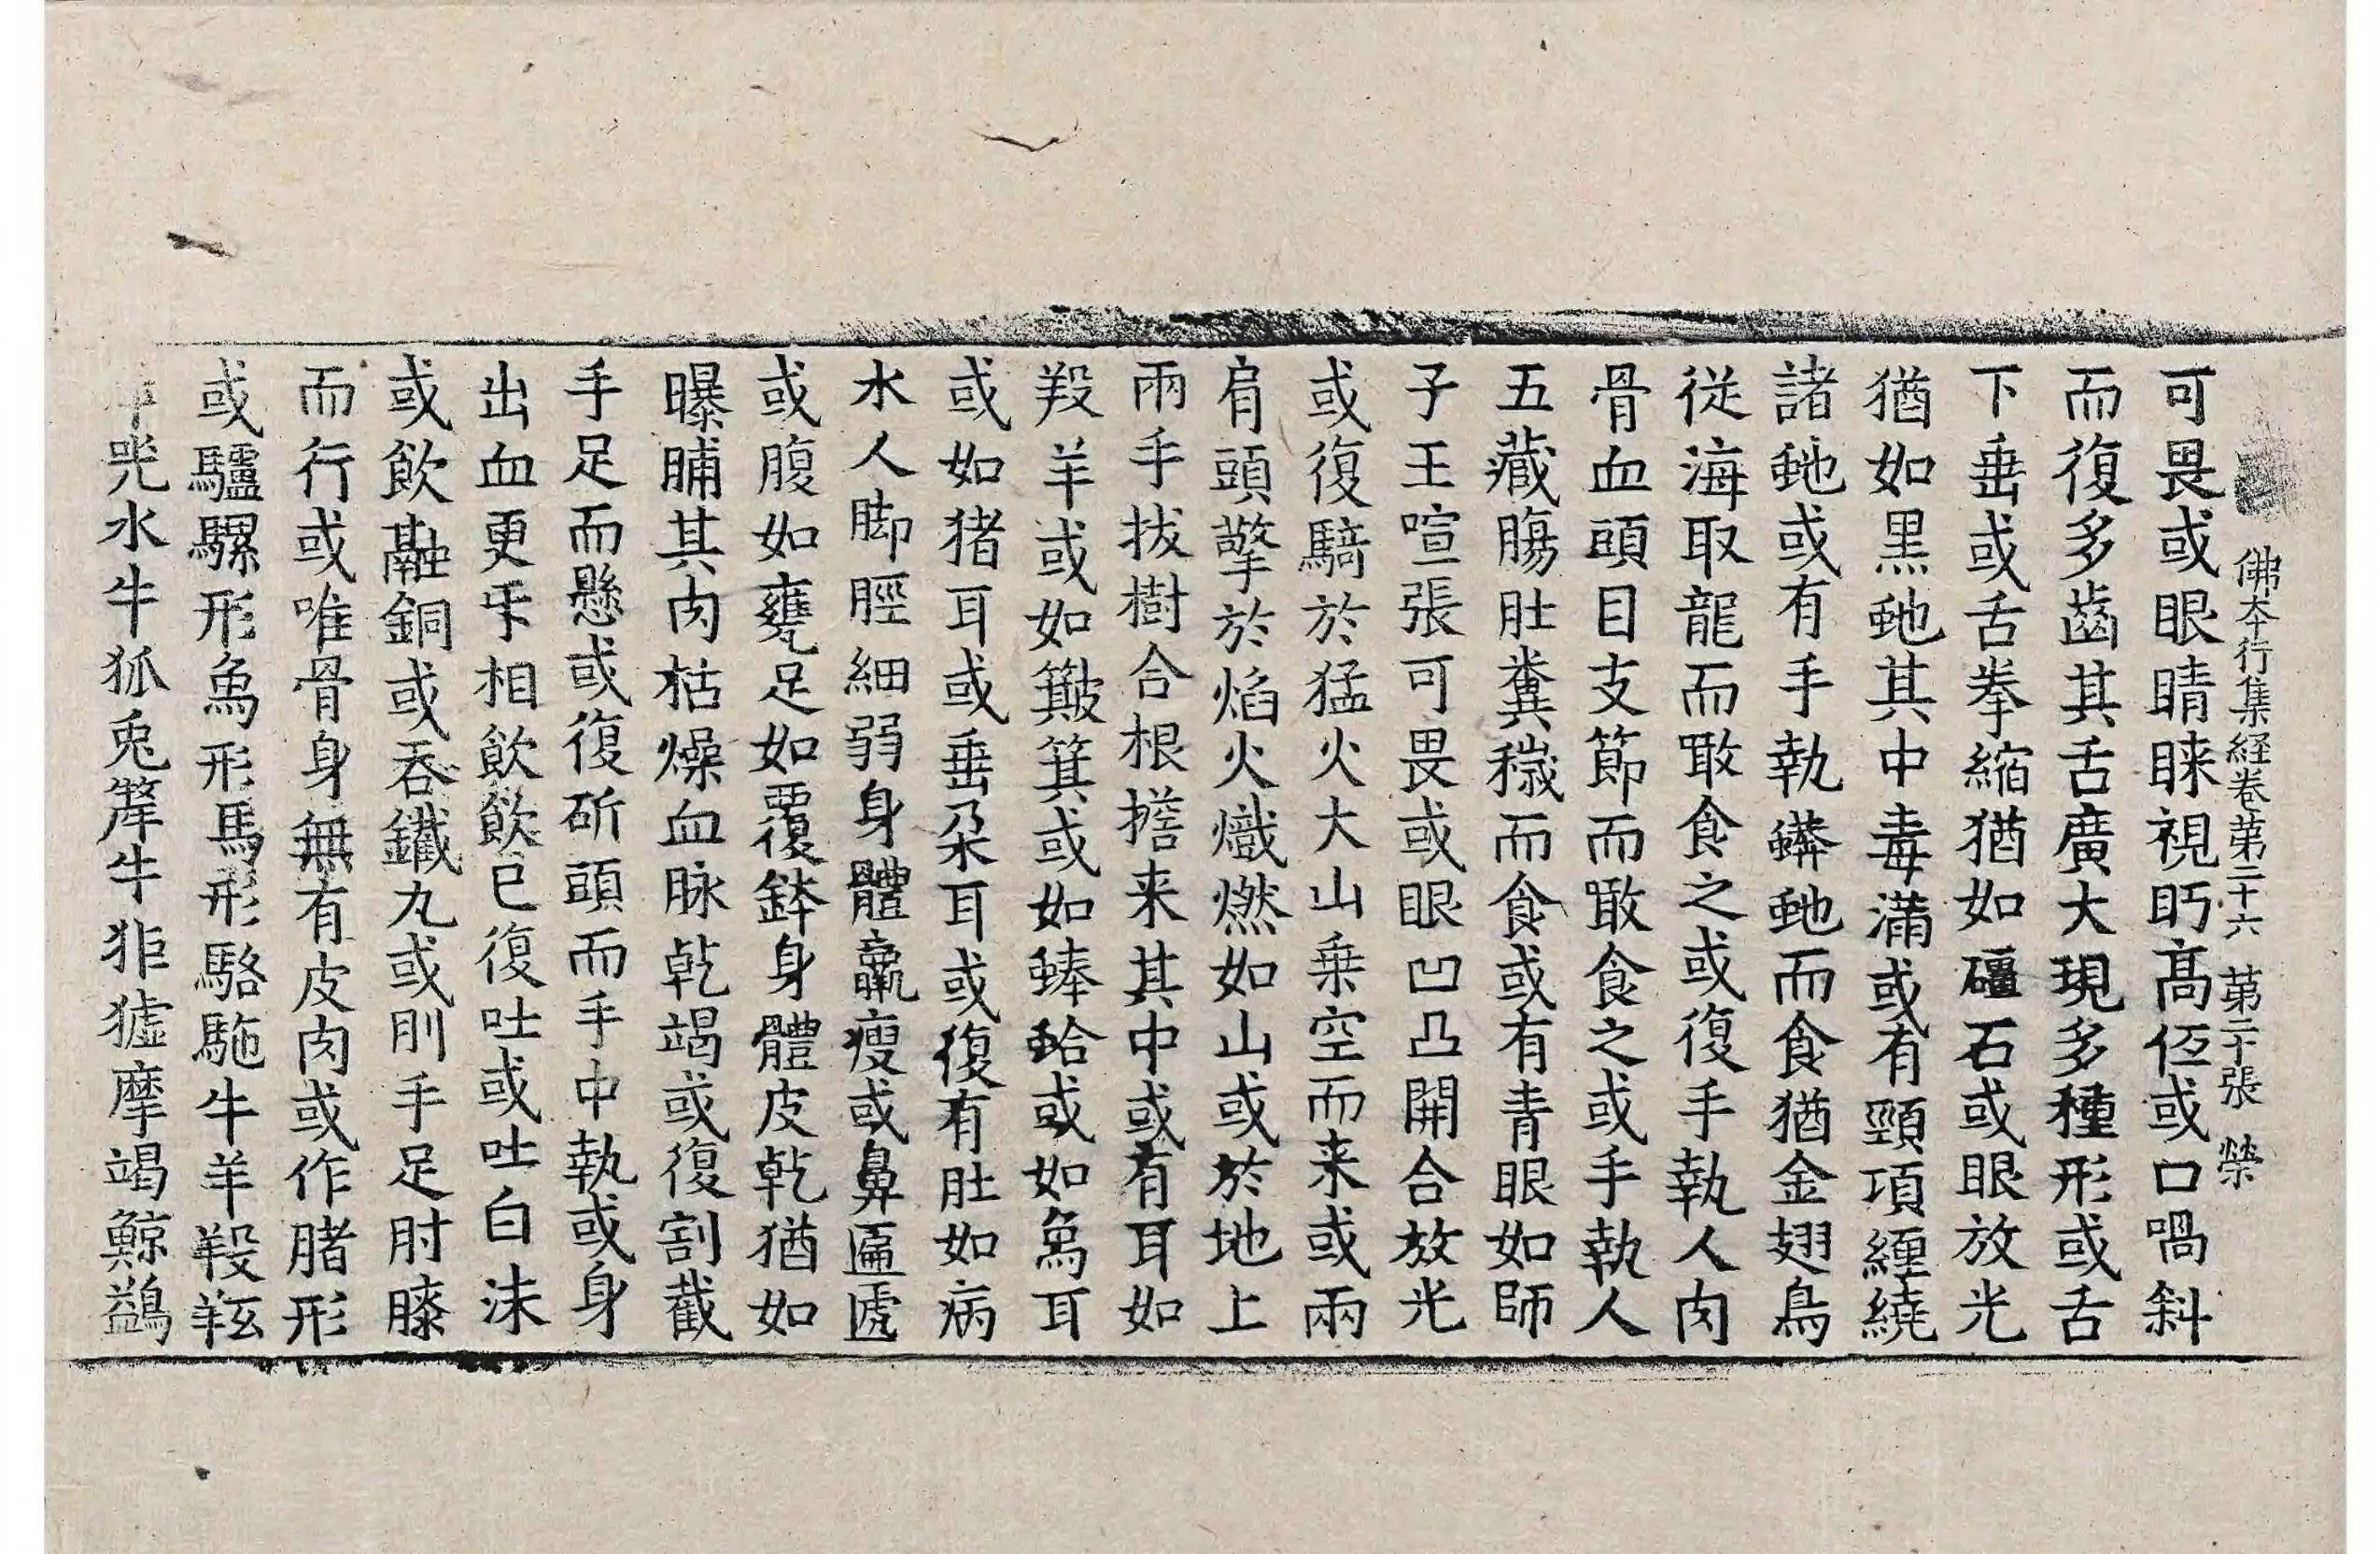 佛夲行集経卷第二十六 第二十張 榮
可畏或眼睛睞視眄髙伵或口喎斜
而復多齒其舌廣大現多種形或舌
下垂或舌拳縮猶如礓石或眼放光
猶如黒虵其中毒滿或有頸項纏繞
諸虵或有手執蟒虵而食猶金翅鳥
従海取龍而噉食之或復手執人肉
骨血頭目支節而噉食之或手執人
五藏膓肚糞穢而食或有青眼如師
子王喧張可畏或眼凹凸開合放光
或復騎於猛火大山乗空而来或兩
肩頭擎於焰火熾燃如山或於地上
兩手拔樹合根擔来其中或有耳如
羖羊或如簸箕或如蜯蛤或如象耳
或如猪耳或垂朶耳或復有肚如病
水人脚脛細弱身體羸瘦或鼻匾㔸
或腹如甕足如覆鉢身體皮乾猶如
曝脯其肉枯燥血脉乾竭或復割截
手足而懸或復斫頭而手中執或身
出血更㸦相飲飲已復吐或吐白沫
或飲融銅或吞鐵丸或刖手足肘膝
而行或唯骨身無有皮肉或作猪形
或驢騾形象形馬形駱駞牛羊羖羝
兕水牛狐兎犛牛狉㹢摩竭鯨鷁